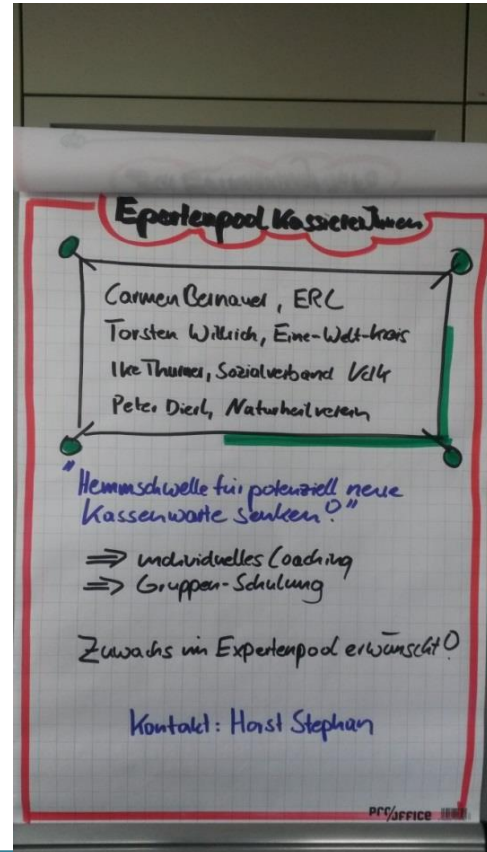 Epertenpool KassiererInnen
Carmen Bernauer, ERC
Torsten Willrich, Eine-Welt-Kreis
Ike Thumer, Sozialverband VdK
Peter Dierl, Naturheilverein
"Hemmschwelle für potenziell neue
Kassenwarte senken!"
⇒ individuelles Coaching
⇒ Gruppen-Schulung
Zuwachs im Expertenpool erwünscht!
Kontakt: Horst Stephan